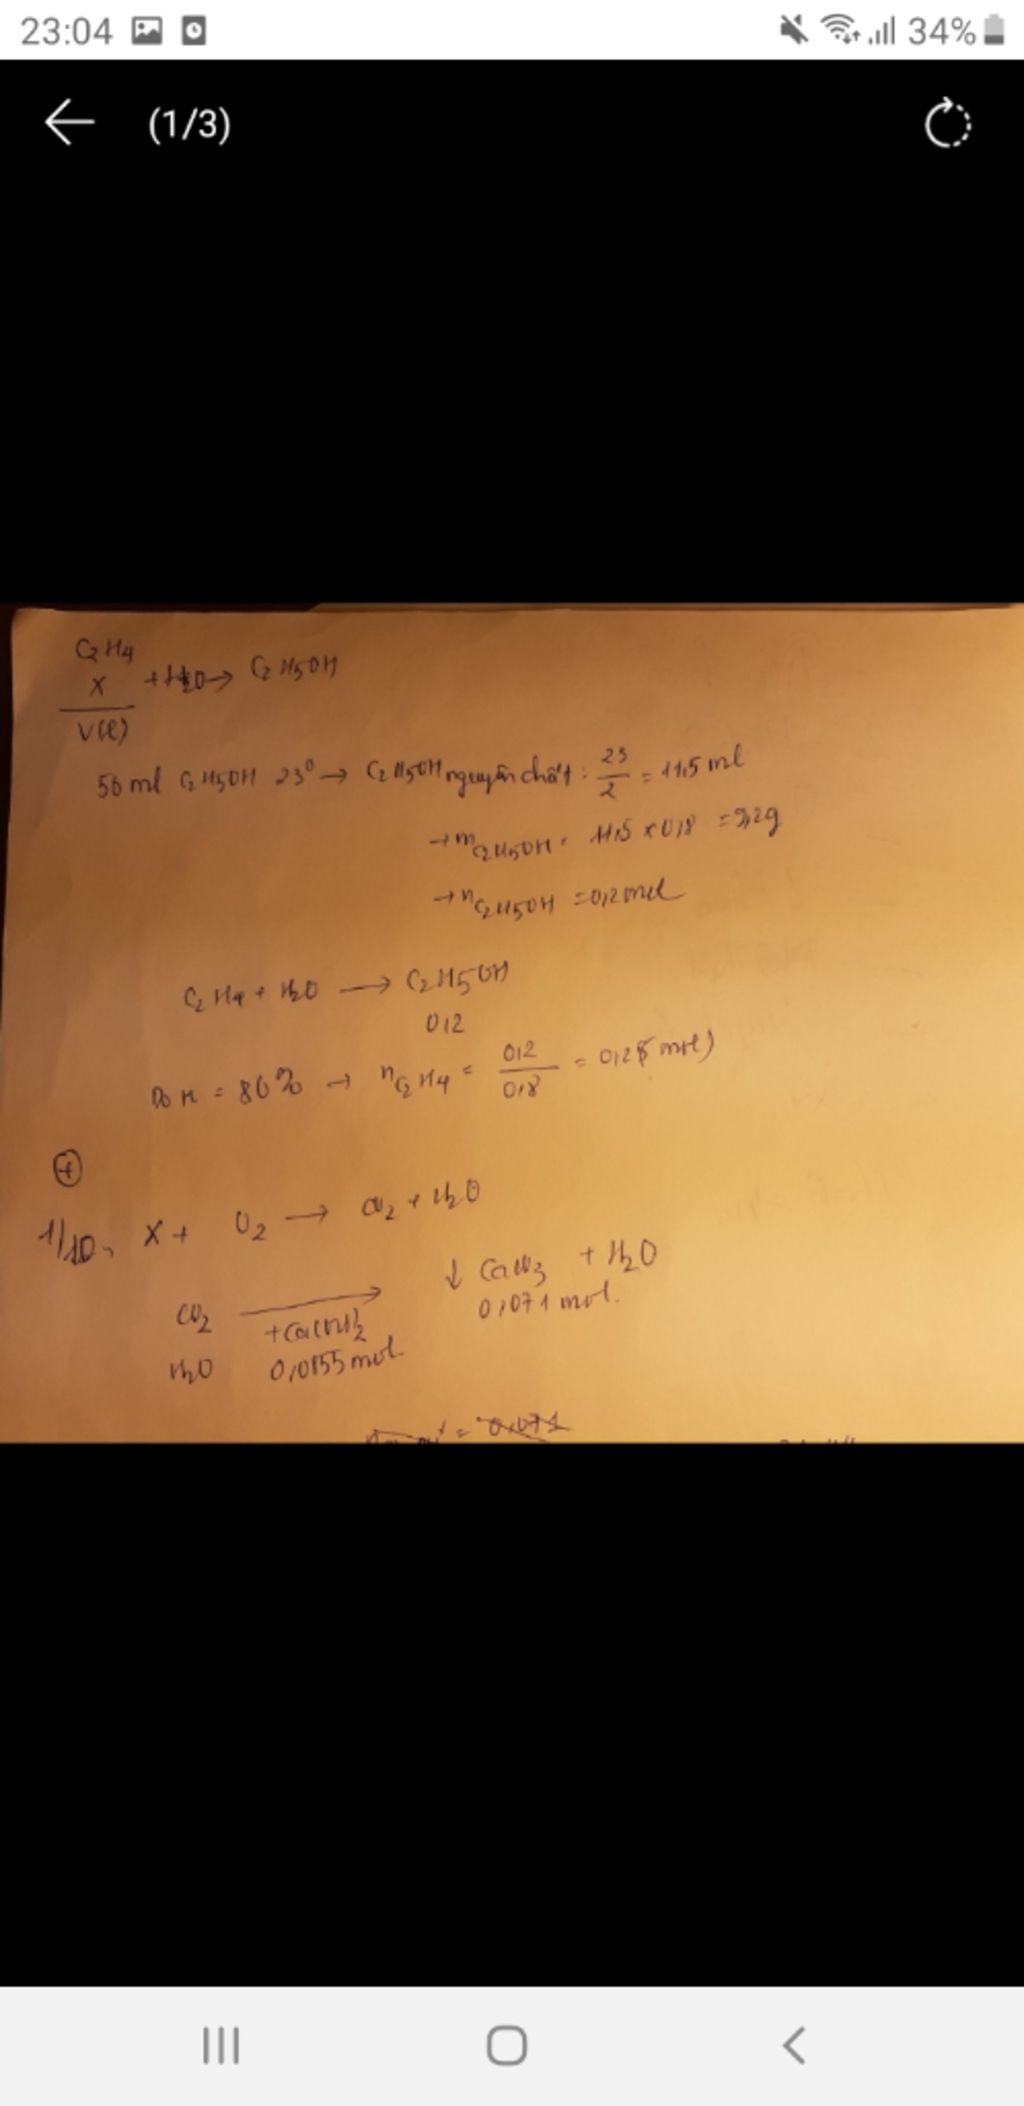 23:04 34%
(1/3)
C2H4
X + H2O → C2H5OH
V(l)
50 ml C2H5OH 23° → C2H5OH nguyên chất: 23/2 = 11,5 ml
→ mC2H5OH = 11,5 x 0,8 = 9,2g
→ nC2H5OH = 0,2 mol
C2H4 + H2O → C2H5OH
0,2
Do H = 80% → nC2H4 = 0,2/0,8 = 0,25 mol)
+
1/10, X + O2 → CO2 + H2O
CO2 → ↓ CaCO3 + H2O
+Ca(OH)2 0,071 mol.
H2O 0,0855 mol
= 0,071